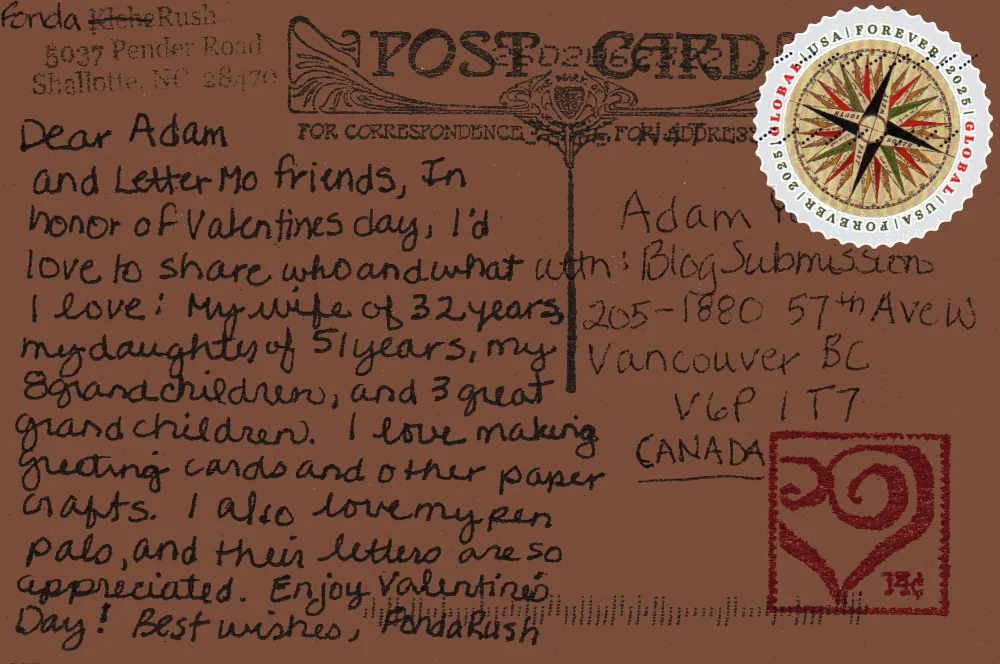 Fonda Rush
5037 Pender Road
Shallotte, NC 28470
POST CARD
FOR CORRESPONDENCE
FOR ADDRESS
GLOBAL | USA | FOREVER | 2025 | GLOBAL | USA | FOREVER | 2025
Dear Adam
and LetterMo friends, In
honor of Valentines day, I'd
love to share who and what
I love: My wife of 32 years,
my daughter of 51 years, my
8 grandchildren, and 3 great
grandchildren. I love making
greeting cards and other paper
crafts. I also love my pen
pals, and their letters are so
appreciated. Enjoy Valentine's
Day! Best wishes, Fonda Rush
Adam
attn: Blog Submissions
205-1880 57th Ave W
Vancouver BC
V6P 1T7
CANADA
14¢